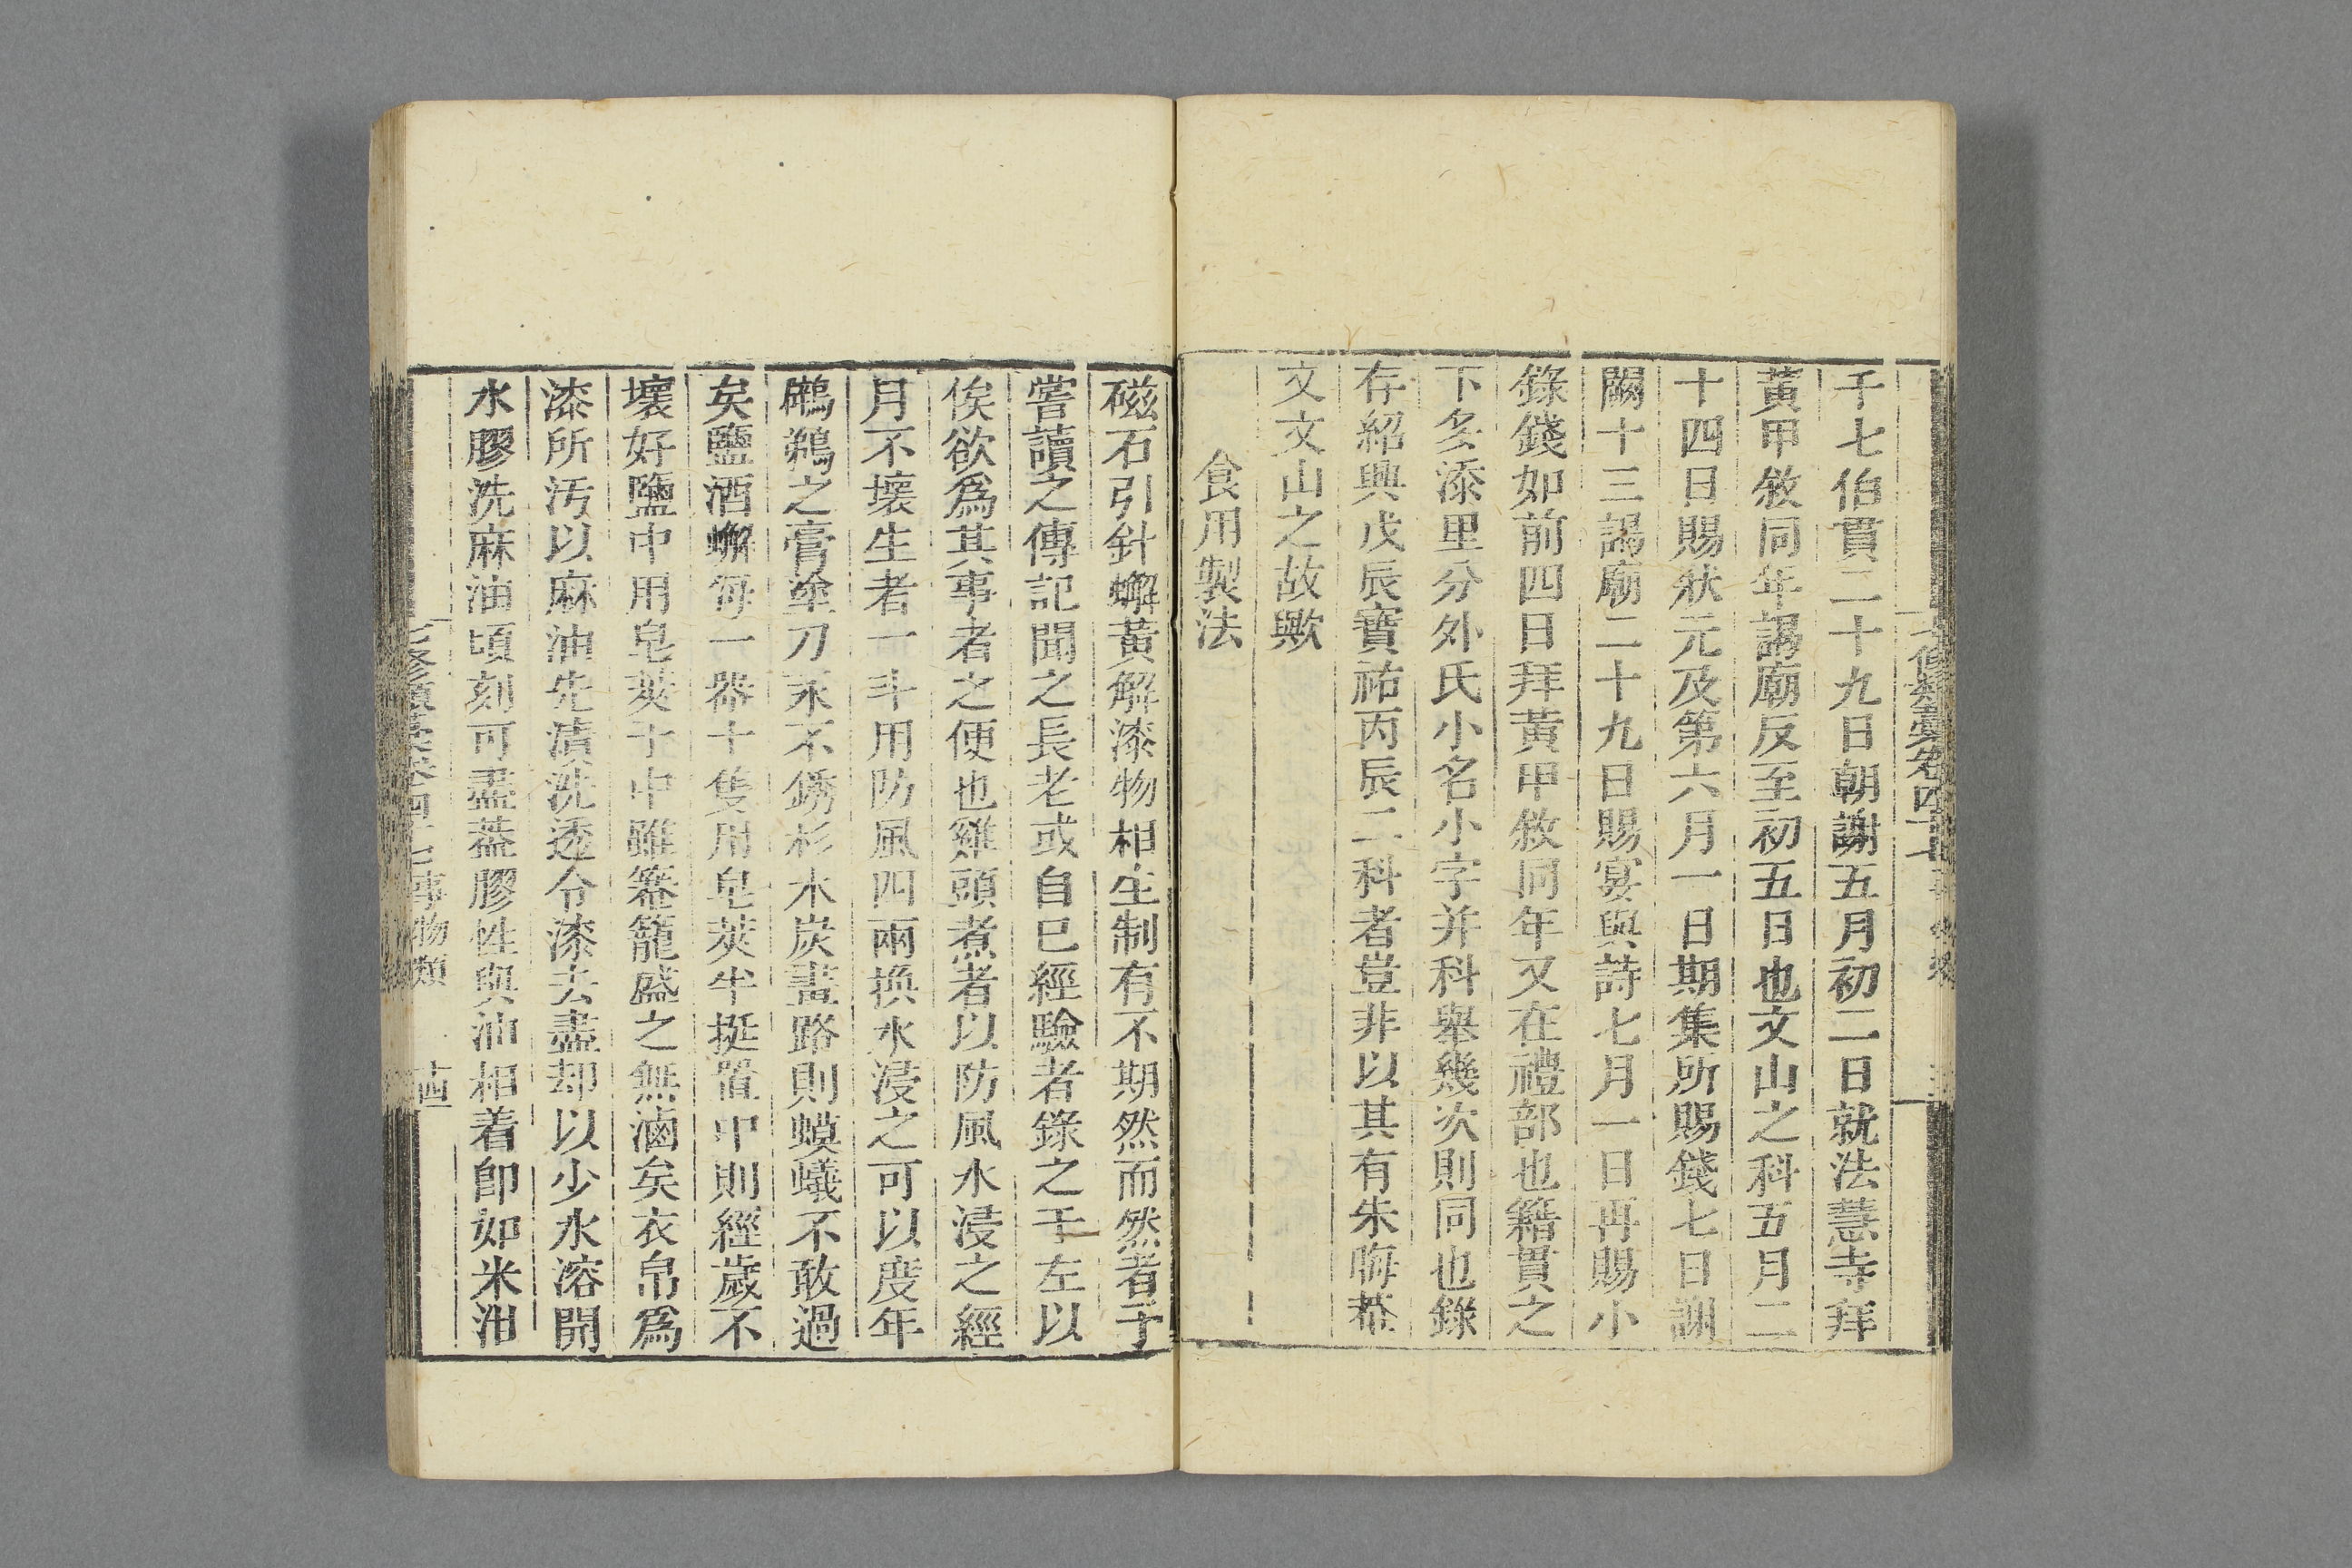 千七伯貫二十九日朝謝五月初二日就法慧寺拜
黃甲敘同年謁廟反至初五日也文山之科五月二
十四日賜狀元及第六月一日期集所賜錢七日謝
闕十三謁廟二十九日賜宴與詩七月一日再賜小
錄錢如前四日拜黃甲敘同年又在禮部也籍貫之
下多添里分外氏小名小字并科舉幾次則同也錄
存紹興戊辰寶祐丙辰二科者豈非以其有朱晦菴
文文山之故歟
食用製法
磁石引針蠏黃解漆物相生制有不期然而然者予
嘗讀之傳記聞之長老或自已經驗者錄之于左以
俟欲爲其事者之便也雞頭煮者以防風水浸之經
月不壞生者一斗用防風四兩換水浸之可以度年
鷉鵜之膏塗刀永不銹杉木炭畫路則蟆蟻不敢過
矣鹽酒蠏每一器十隻用皂莢半挺置中則經歲不
壞好鹽中用皂莢于中雖簍籠盛之無滷矣衣帛爲
漆所汚以麻油先漬洗透令漆去盡却以少水溶開
水膠洗麻油頃刻可盡葢膠性與油相着卽如米泔
七修類藁卷四十七事物類
十四